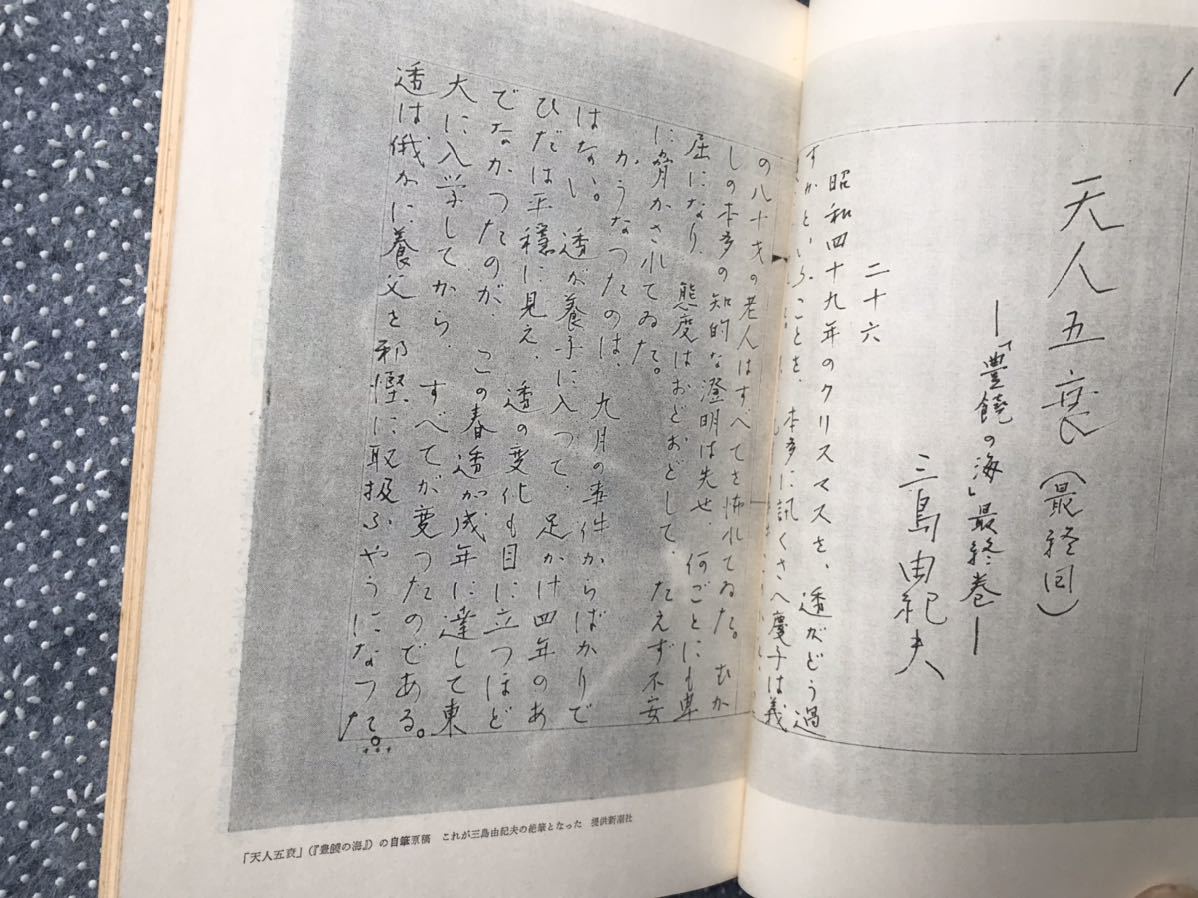 天人五衰（最終回）
―「豊饒の海」最終巻―
三島由紀夫
二十六
昭和四十九年のクリスマスを、透がどう過
すかといふことを、本多に訊くさへ慶子は義
の八十才の老人はすべてを怖れてゐた。むか
しの本多の知的な澄明は失せ、何ごとにも卑
屈になり、態度はおどおどして、たえず不安
に脅かされてゐた。
かうなつたのは、九月の事件からばかりで
はない。透が養子に入つて、足かけ四年のあ
ひだは平穏に見え、透の変化も目に立つほど
でなかつたのが、この春透が成年に達して東
大に入学してから、すべてが変つたのである。
透は俄かに養父を邪慳に取扱ふやうになつた。
「天人五衰」（『豊饒の海』）の自筆原稿　これが三島由紀夫の絶筆となった　提供新潮社